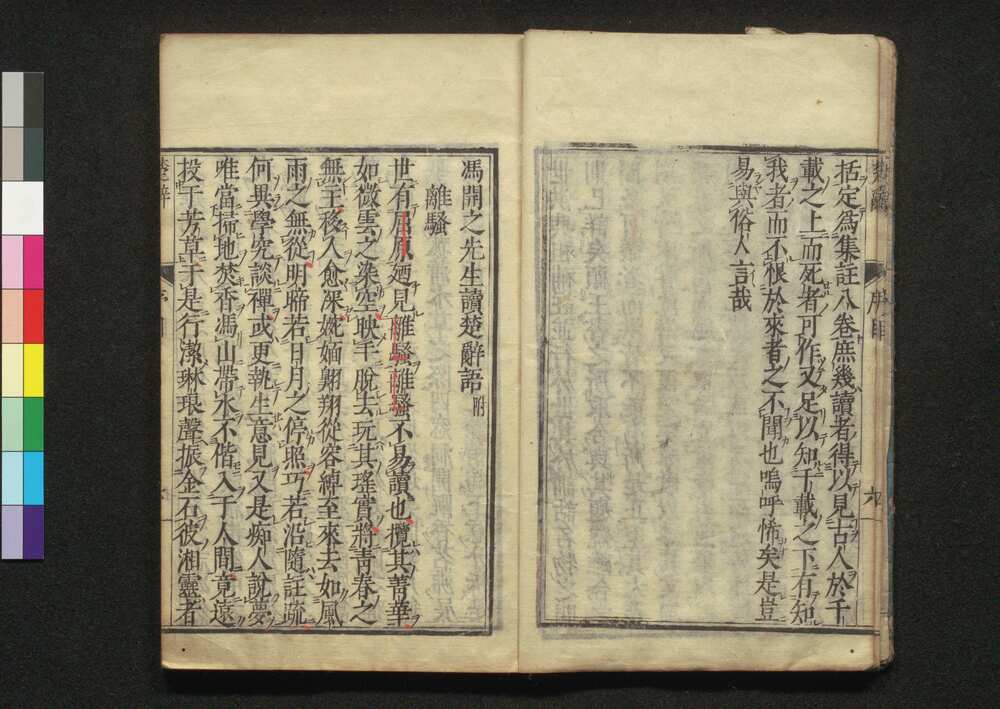 括定爲集註八卷庶幾讀者得以見古人於千
載之上而死者可作又足以知千載之下有知
我者而不恨於來者之不聞也嗚呼悕矣是豈
易與俗人言哉
馮開之先生讀楚辭語附
離騷
世有屈原廼見離騷離騷不易讀也攬其菁華
如微雲之染空映手脫去玩其瑤實將靑春之
無主移入愈深婗嫡翺翔從容綽至來去如風
雨之無從明晦若日月之停照巧若沿隨註疏
何異學究談禪或更執生意見又是痴人說夢
唯當掃地焚香馮山帶水不偕入于人間竟遠
投于芳草于是行潔琳琅聲振金石彼湘靈者